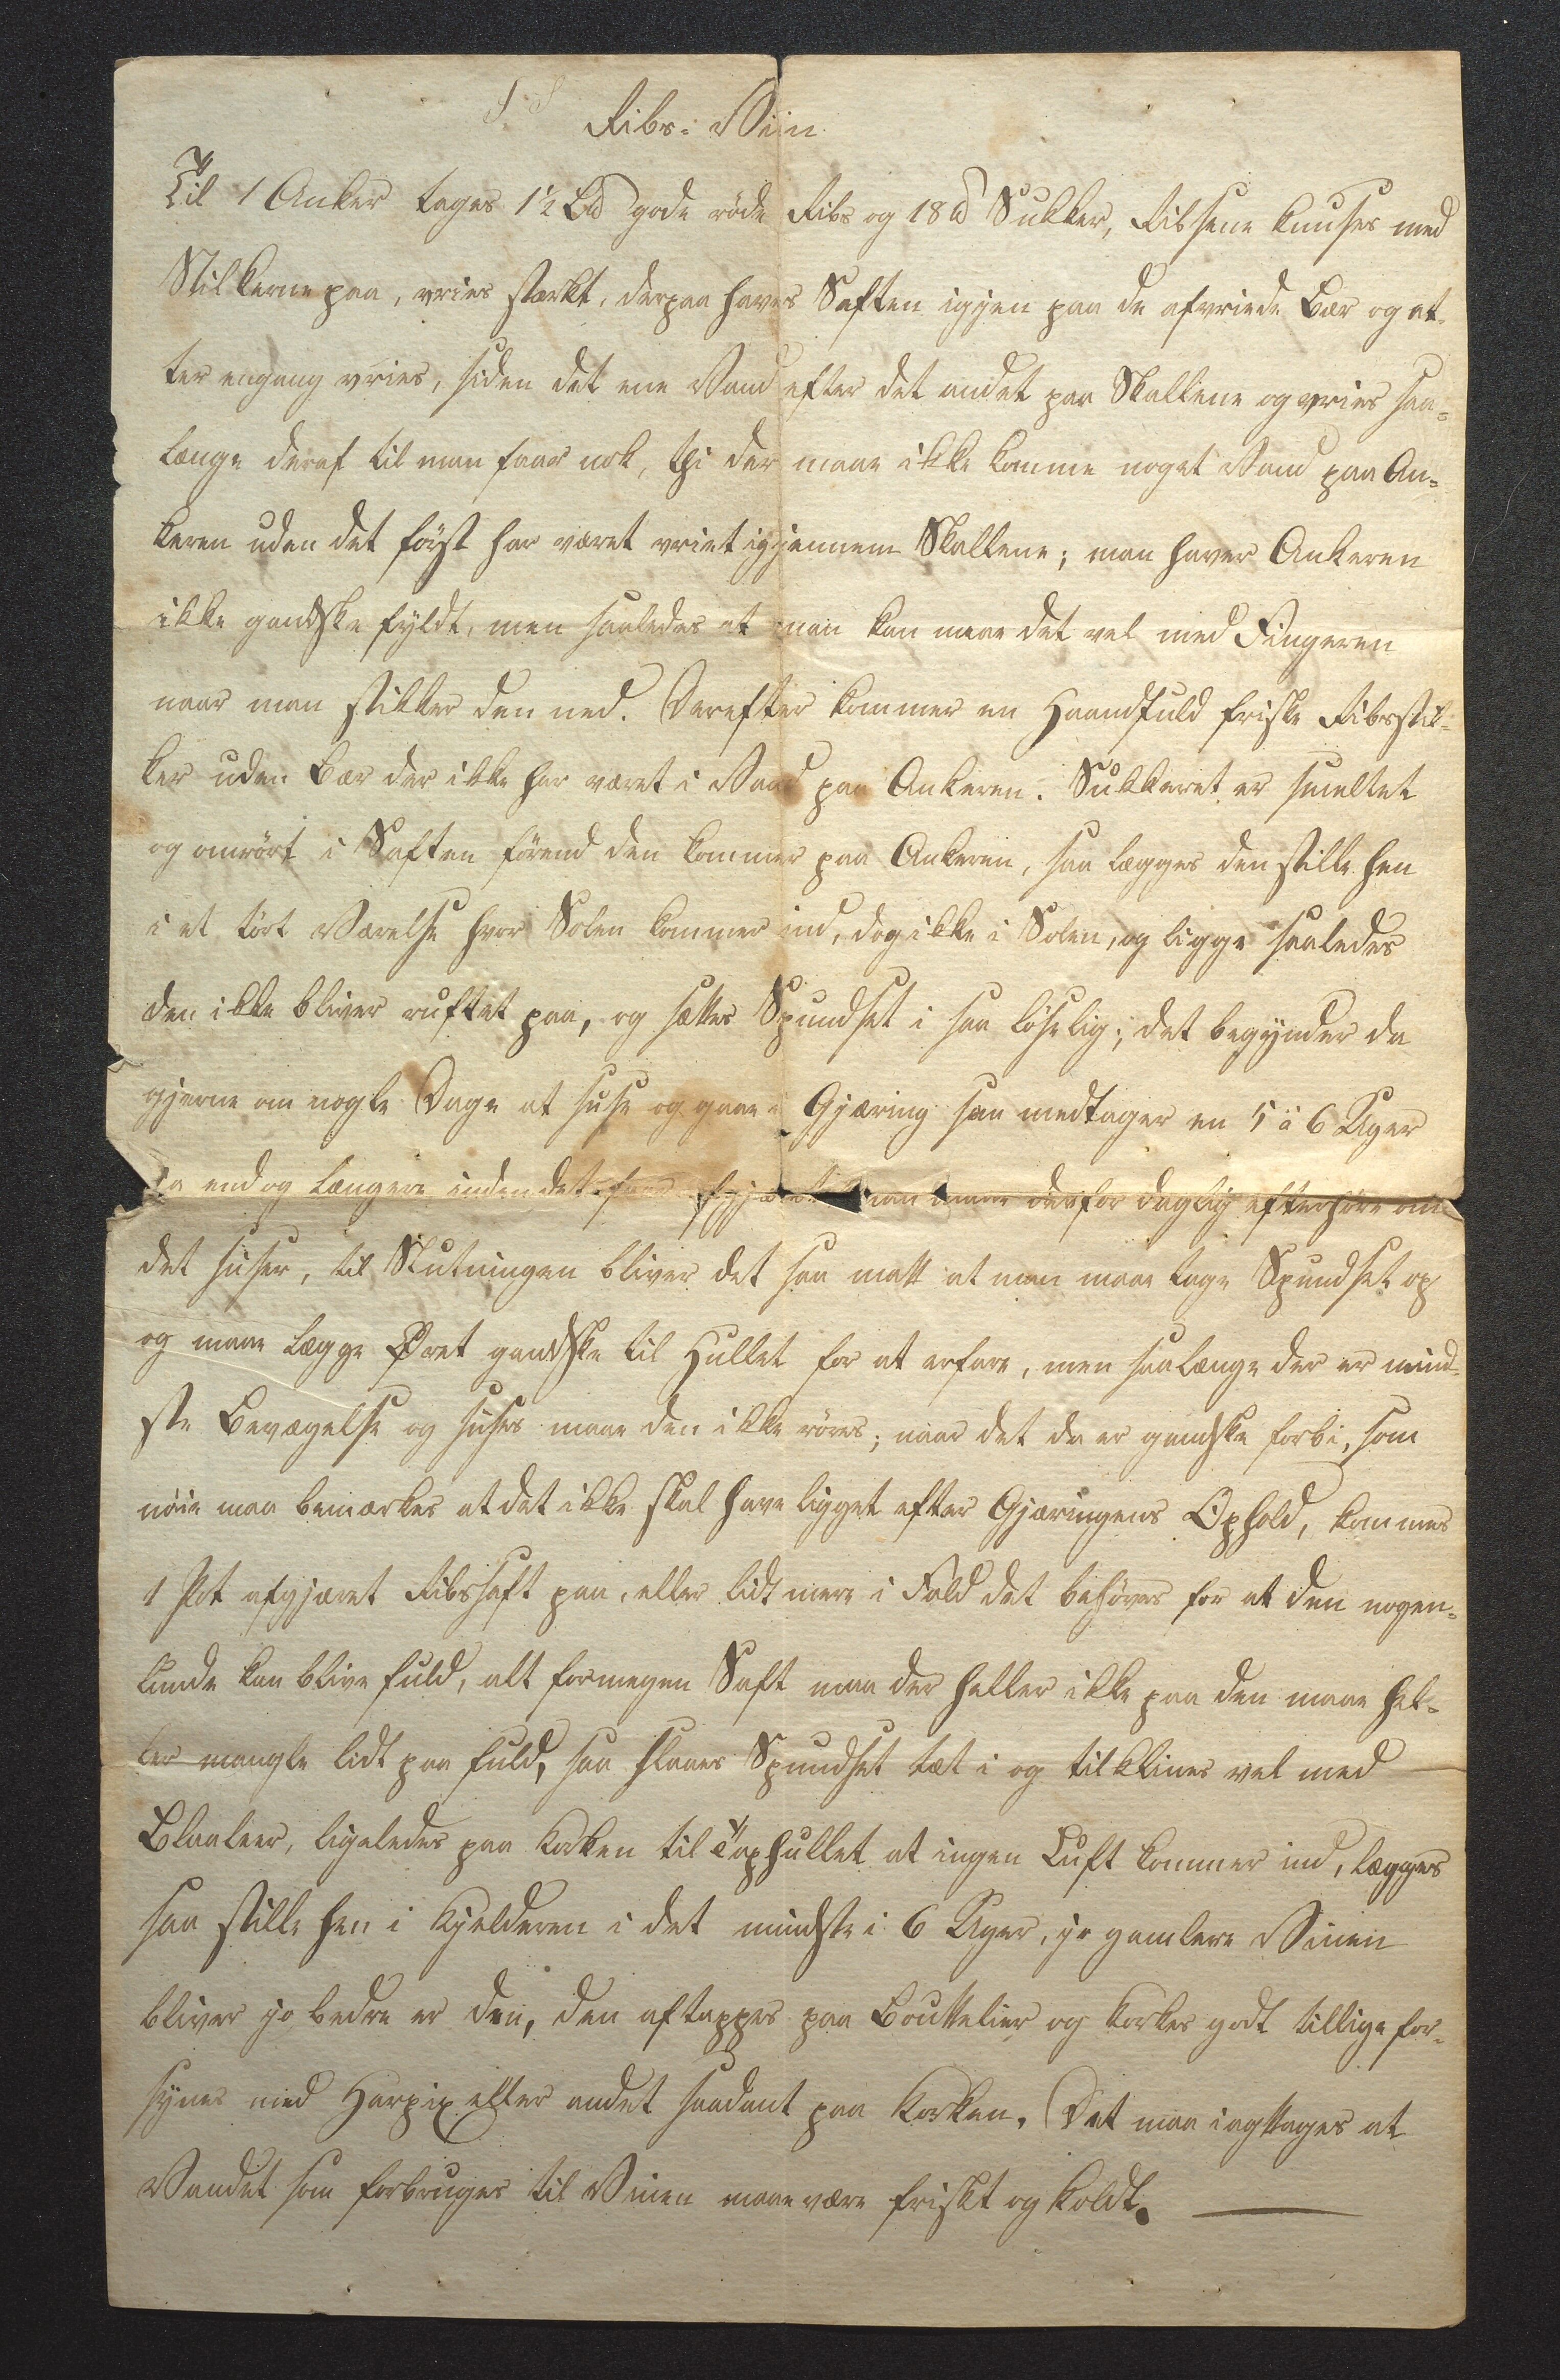 Ribs-Viin
Til 1 Anker tages 1½ Ld gode røde Ribs og 18 ℔ Sukker, Ribsene knuses med
Stilkerne paa, vries stærkt, derpaa haves Saften igjen paa de afvriede Bær og at-
ter engang vries, siden det ene Vand efter det andet paa Skallene og vries saa-
længe deraf til man faar nok, thi der maae ikke komme noget Vand paa An-
keren uden det først har været vriet igjennem Skallene; man haver Ankeren
ikke gandske fyldt, men saaledes at man kan naae det vel med Fingeren
naar man stikker den ned. Derefter kommer en Haandfuld friske Ribsstil-
ker uden Bær der ikke har været i Vand paa Ankeren. Sukkeret er smeltet
og omrørt i Saften førend den kommer paa Ankeren, saa lægges den stille hen
i et tørt Værelse hvor Solen kommer ind, dog ikke i Solen, og ligge saaledes
den ikke bliver rustet paa, og sættes Spundset i saa løselig; det begynder da
gjerne om nogle Dage at suse og gaae i Gjæring saa medtager en 5 à 6 Uger
ja endog længere inden det faar man maae derfor daglig efterhøre om
det suser, til Slutningen bliver det saa matt at man maae tage Spundset op
og maae lægge Øret gandske til Hullet for at erfare, men saalænge der er mind-
ste Bevægelse og suses maae den ikke røres; naar det da er gandske forbi, som
nøie maa bemærkes at det ikke skal have ligget efter Gjæringens Ophold, kommes
1 Pot afgjæret Ribssaft paa, eller lidt mere i Fald det behøves for at den nogen-
lunde kan blive fuld, alt formegen Saft maa der heller ikke paa den maae hel-
ler mangle lidt paa fuld, saa slaaes Spundset tæt i og tilklines vel med
Blaaleer, ligeledes paa Korken til Taphullet at ingen Luft kommer ind, lægges
saa stille hen i Kjelderen i det mindste i 6 Uger, jo gamlere Vinen
bliver jo bedre er den, den aftappes paa Bouttelier og korkes godt tillige for-
synes med Harpix eller andet saadant paa Korken. Det maa iagttages at
Vandet som forbruges til Vinen maae være friskt og koldt.